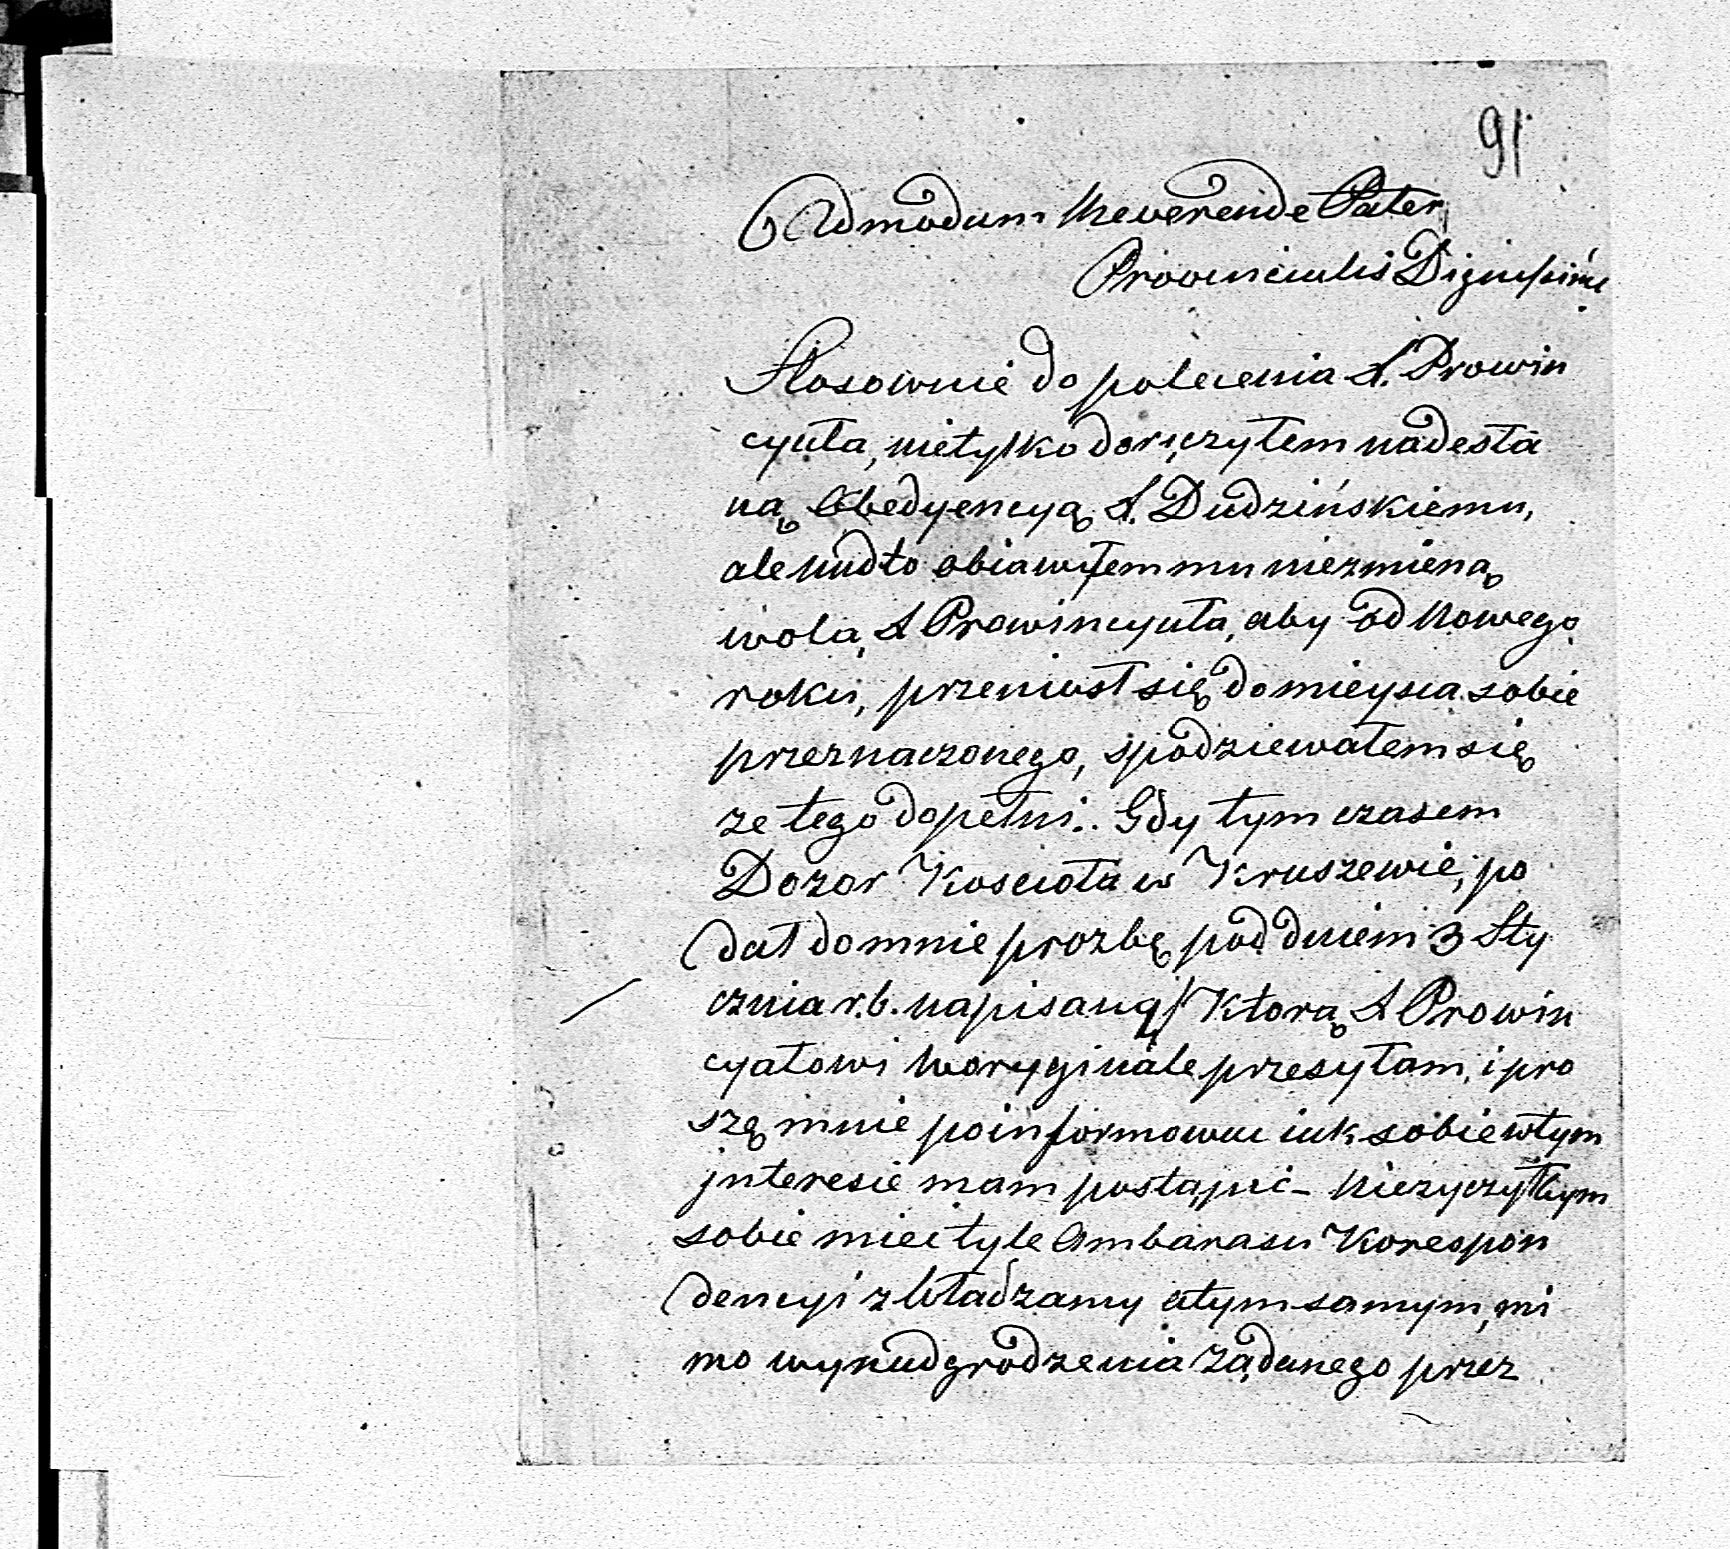 91
Admodum Reverende Pater
Provincialis Dignissime
Stosownie do polecenia X. Prowin
cyała, nietylko doręczyłem nadesła
ną Obedyencyą X. Dudzińskiemu,
ale nadto obiawiłem mu niezmieną
wolą X Prowincyała, aby od Nowego
roku, przeniosł się do mieysca sobie
przeznaczonego, spodziewałem się
ze tego dopełni. Gdy tym czasem
Dozor Koscioła w Kruszewie, po
dał do mnie prozbę pod dniem 3 Sty
cznia r. b. napisaną, Ktorą X Prowin
cyałowi w oryginale przesyłam, i pro
szę mnie poinformować iak sobie w tym
jnteresie mam postąpić – Nieżyczyłbym
sobie mieć tyle Ambarasu Korespon
dencyi z Władzamy a tym samym, mi
mo wynadgrodzenia żądanego przez